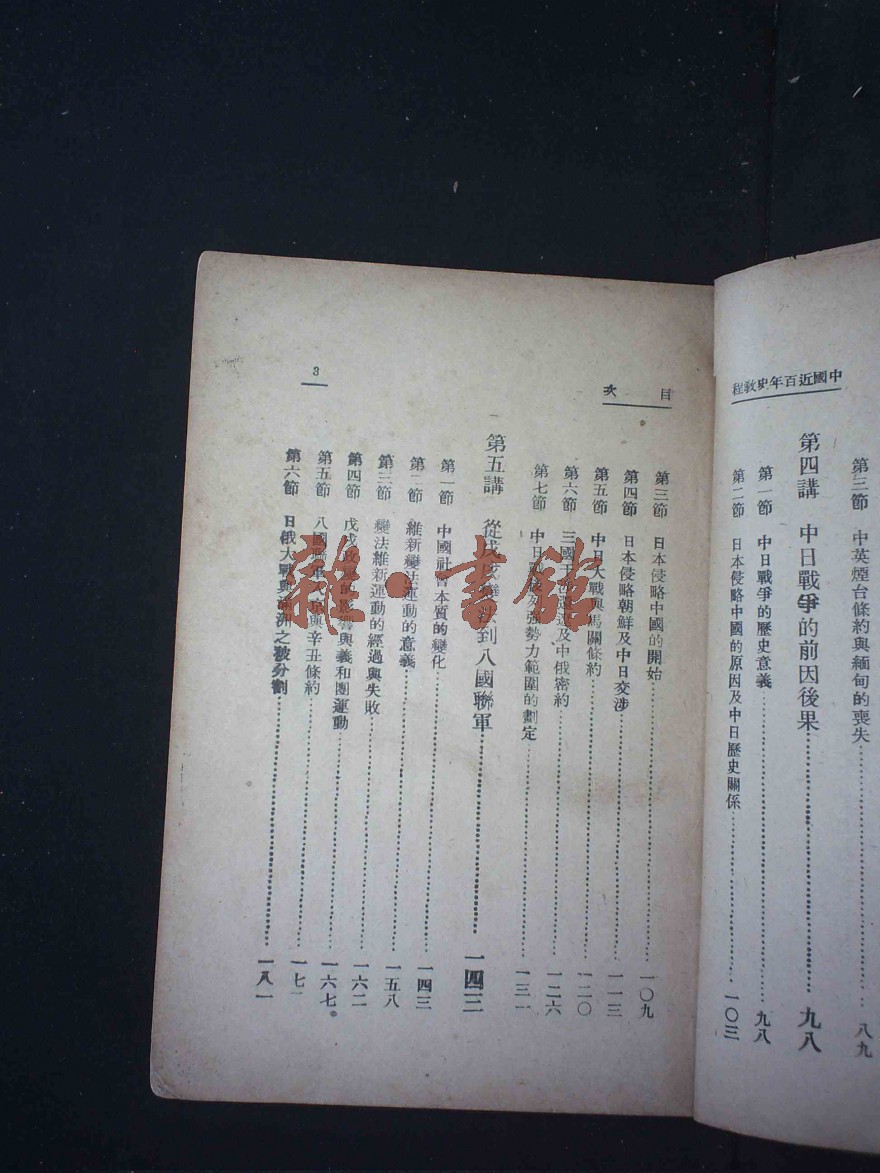 中國近百年史教程
第三節 中英煙台條約與緬甸的喪失 八九
第四講 中日戰爭的前因後果 九八
第一節 中日戰爭的歷史意義 九八
第二節 日本侵略中國的原因及中日歷史關係 一〇三
目 次
第三節 日本侵略中國的開始 一〇九
第四節 日本侵略朝鮮及中日交涉 一一三
第五節 中日大戰與馬關條約 一二〇
第六節 三國干 及中俄密約 一二六
第七節 中日戰後列強勢力範圍的劃定 一三一
第五講 從戊戌變法到八國聯軍 一四三
第一節 中國社會本質的變化 一四三
第二節 維新變法運動的意義 一五八
第三節 變法維新運動的經過與失敗 一六二
第四節 戊戌政變的影響與義和團運動 一六七
第五節 八國聯軍 與辛丑條約 一七一
第六節 日俄大戰與 洲之被分割 一八一
3
雜·書館